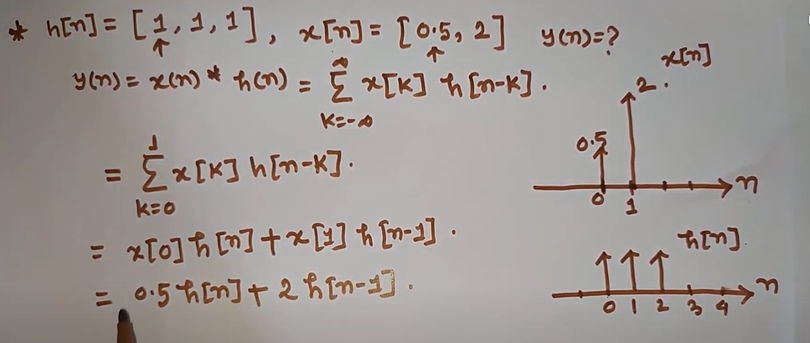 * h[n] = [1, 1, 1], x[n] = [0.5, 2] y(n) = ?
↑ ↑
y(n) = x(n) * h(n) = ∞ Σ k=-∞ x[k] h[n-k].
= 1 Σ k=0 x[k] h[n-k].
= x[0] h[n] + x[1] h[n-1].
= 0.5 h[n] + 2 h[n-1].
x[n]
2
0.5
n
0 1
h[n]
n
0 1 2 3 4